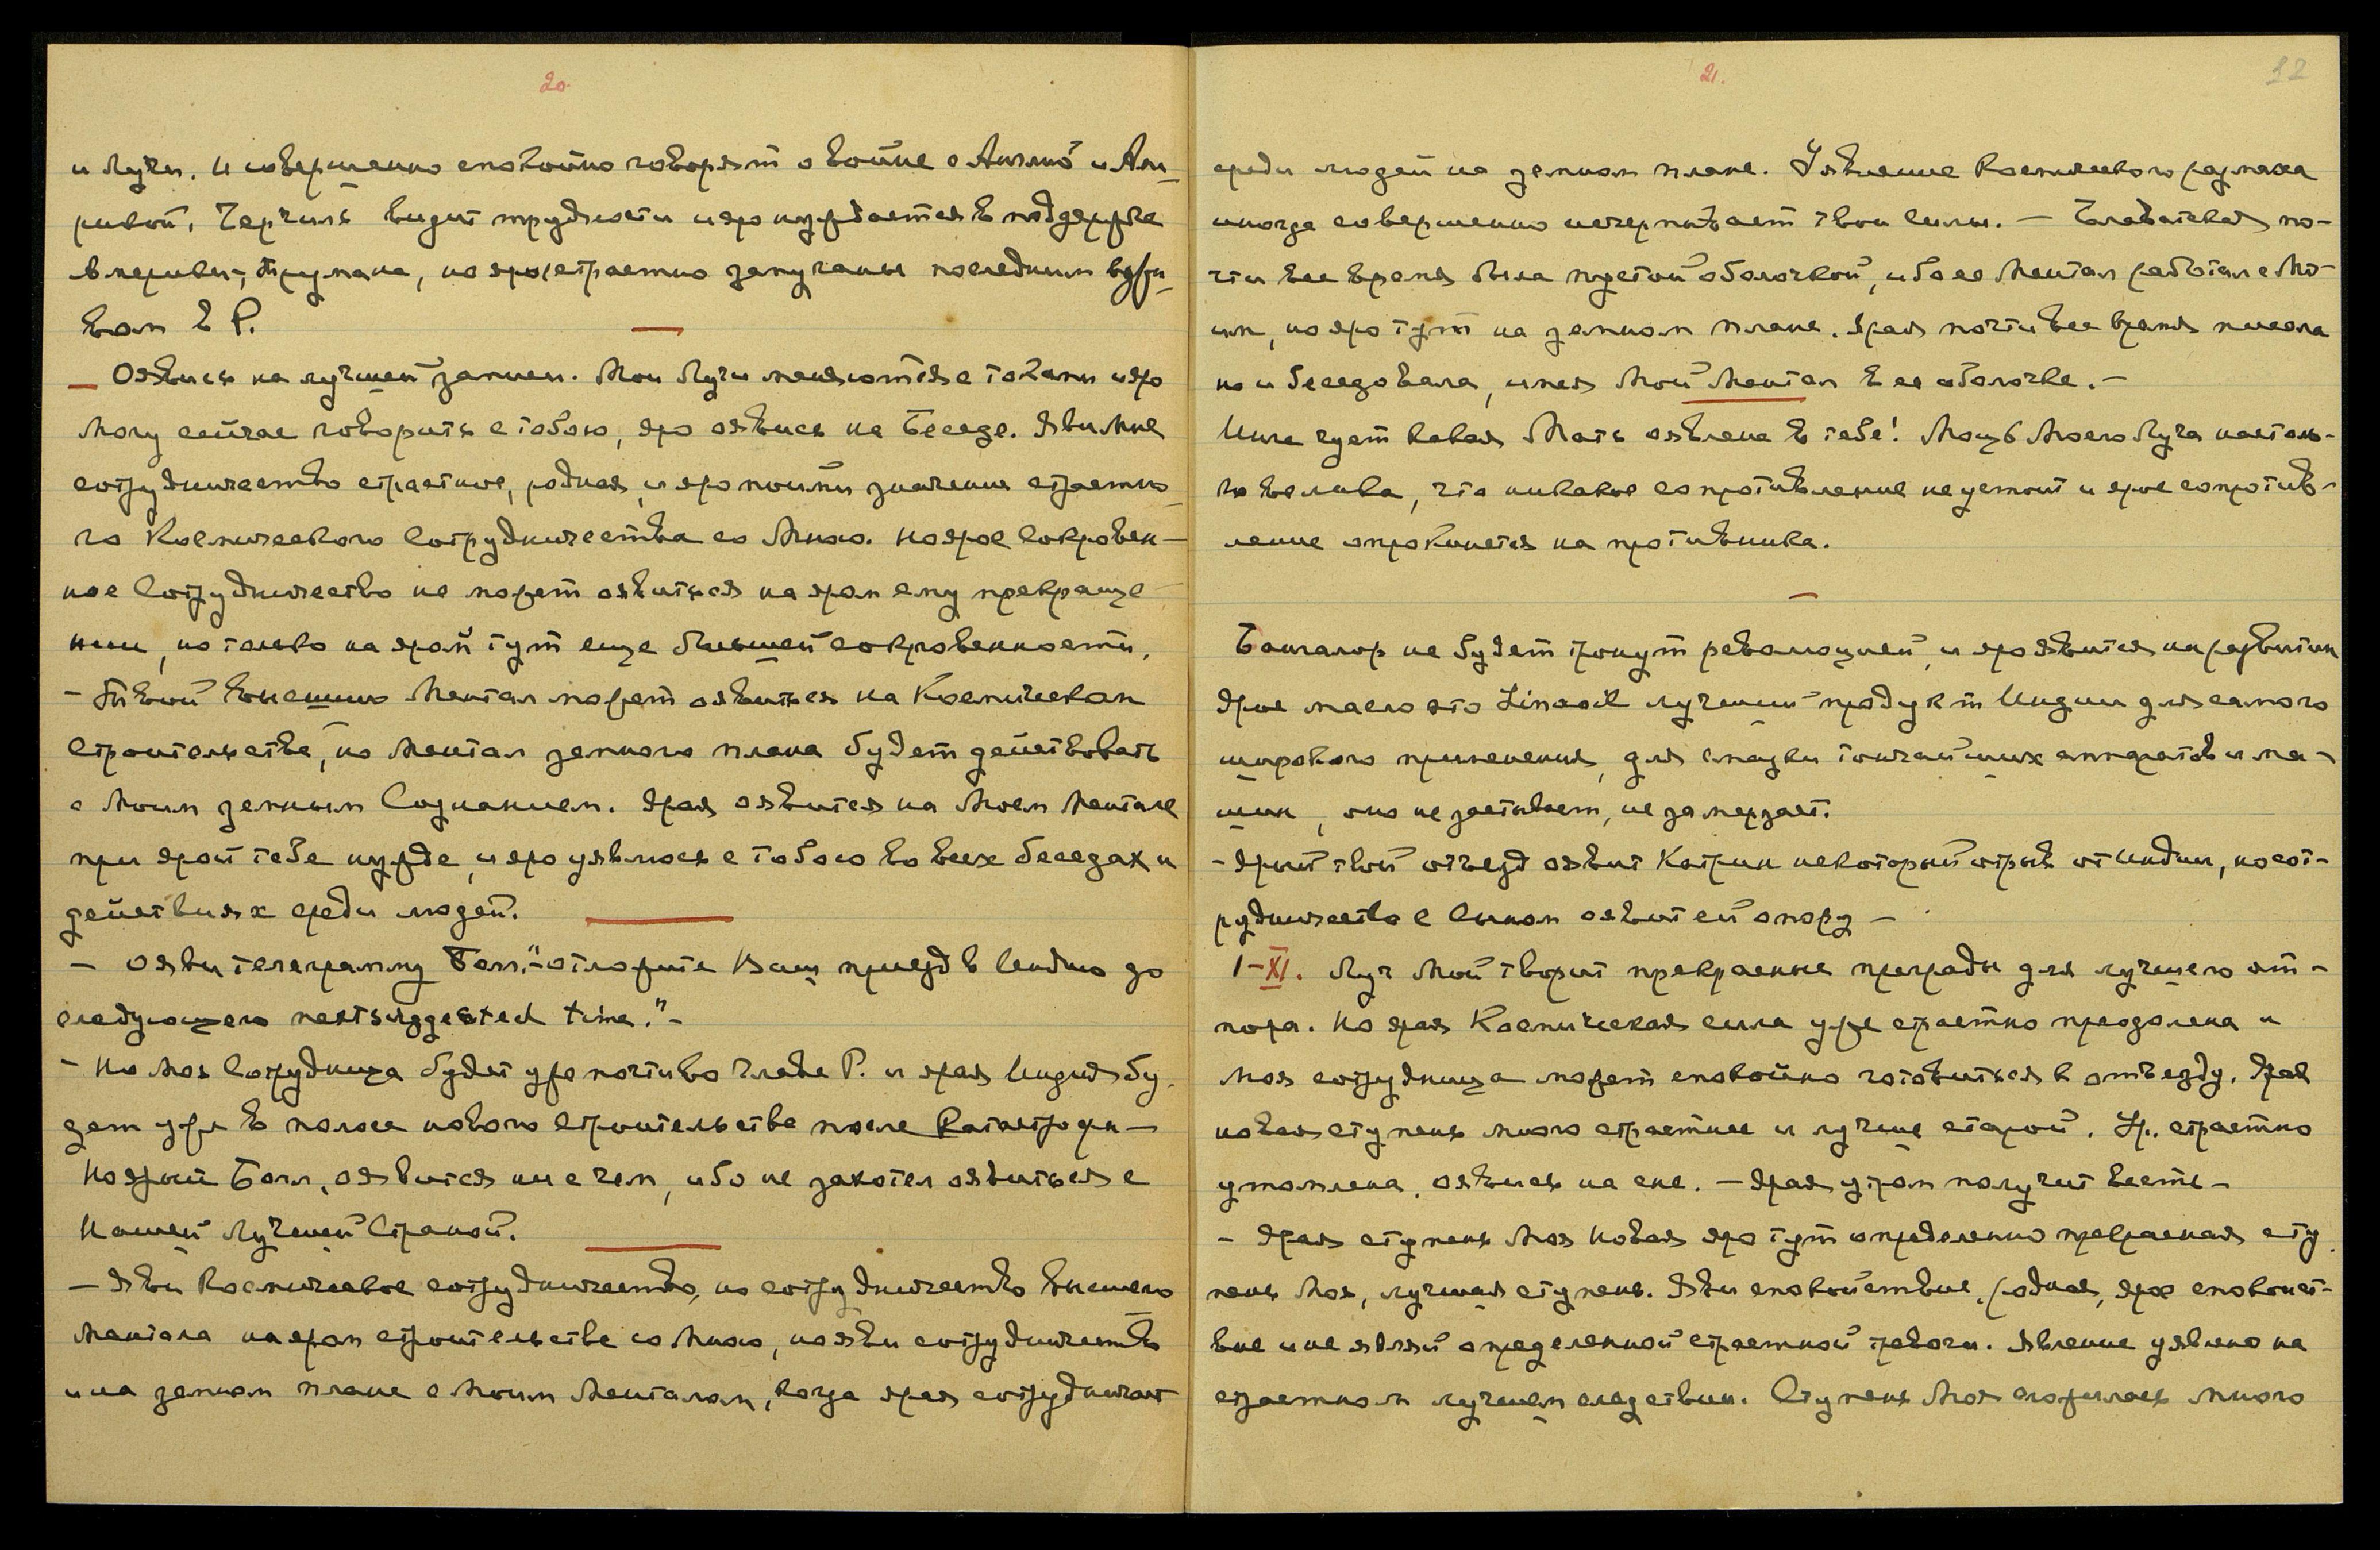 20.
и Лучи. И совершенно спокойно говорят о войне с Англией и Аме-
рикой. Черчиль видит трудности и яро нуждается в поддержке
Америки, Трумана, но яро страстно запуганы последним взры-
вом в Р.
— Оявись на лучшей записи. Мои Лучи меняются с токами и яро
Могу сейчас говорить с тобою, яро оявись на Беседе. Яви Мне
сотрудничество страстное, родная, и яро пойми значение страстно-
го Космического Сотрудничества со Мною. Но ярое Сокровен-
ное Сотрудничество не может оявиться на яром ему прекраще-
нии, но только на ярой тут еще большей сокровенности.
- Твой Высший Ментал может оявиться на Космическом
Строительстве, но Ментал земного плана будет действовать
с Моим земным Сознанием. Ярая оявится на Моем Ментале
при ярой тебе нужде, и яро уявлюся с тобою во всех беседах и
действиях среди людей.
— Ояви телеграмму Бол. "отложите Ваш приезд в Индию до
следующего next suggested time." -
- Но Моя Сотрудница будет уже почти во главе Р. и ярая Индия бу-
дет уже в полосе нового строительства после Катастрофы —
Но ярый Бол. оявится ни с чем, ибо не захотел оявиться с
Нашей Лучшей Страной.
— Яви Космическое сотрудничество, но сотрудничество высшего
Ментала на яром строительстве со Мною, но яви сотрудничество
и на земном плане с Моим Менталом, когда ярая сотрудничает
21.
32
среди людей на земном плане. Уявление Космического размаха
иногда совершенно исчерпывает твои силы. — Блаватская по-
чти все время была пустой оболочкой, ибо ее Ментал работал с Мо-
им, но яро тут на земном плане. Ярая почти все время писала
но и беседовала, имея Мой Ментал в ее оболочке. —
Инге чует какая Мать оявлена в тебе! Мощь Моего Луча настоль-
ко велика, что никакое сопротивление не устоит и ярое сопротив-
ление опрокинется на противника.
Бангалор не будет тронут революцией, и яро явится на развитии
Ярое масло это Linaoil лучший продукт Индии для самого
широкого применения, для смазки тончайших аппаратов и ма-
шин, оно не застывает, не замерзает.
- Ярый твой отъезд оявит Катрин некоторый отрыв от Индии, но сот-
рудничество с Сыном оявит ей опору —
1-XI. Луч Мой творит прекрасные преграды для лучшего от-
пора. Но ярая Космическая сила уже страстно преодолена и
Моя сотрудница может спокойно готовиться к отъезду. Ярая
новая ступень много страстнее и лучше старой. Ур. страстно
утомлена, оявись на сне. — Ярая утром получит весть —
- Ярая ступень Моя Новая яро тут определенно прекрасная сту-
пень Моя, лучшая ступень. Яви спокойствие, родная, ярое спокойст-
вие и не являй определенной страстной тревоги. Явление уявлено на
страстном лучшем следствии. Ступень Моя сложилась много